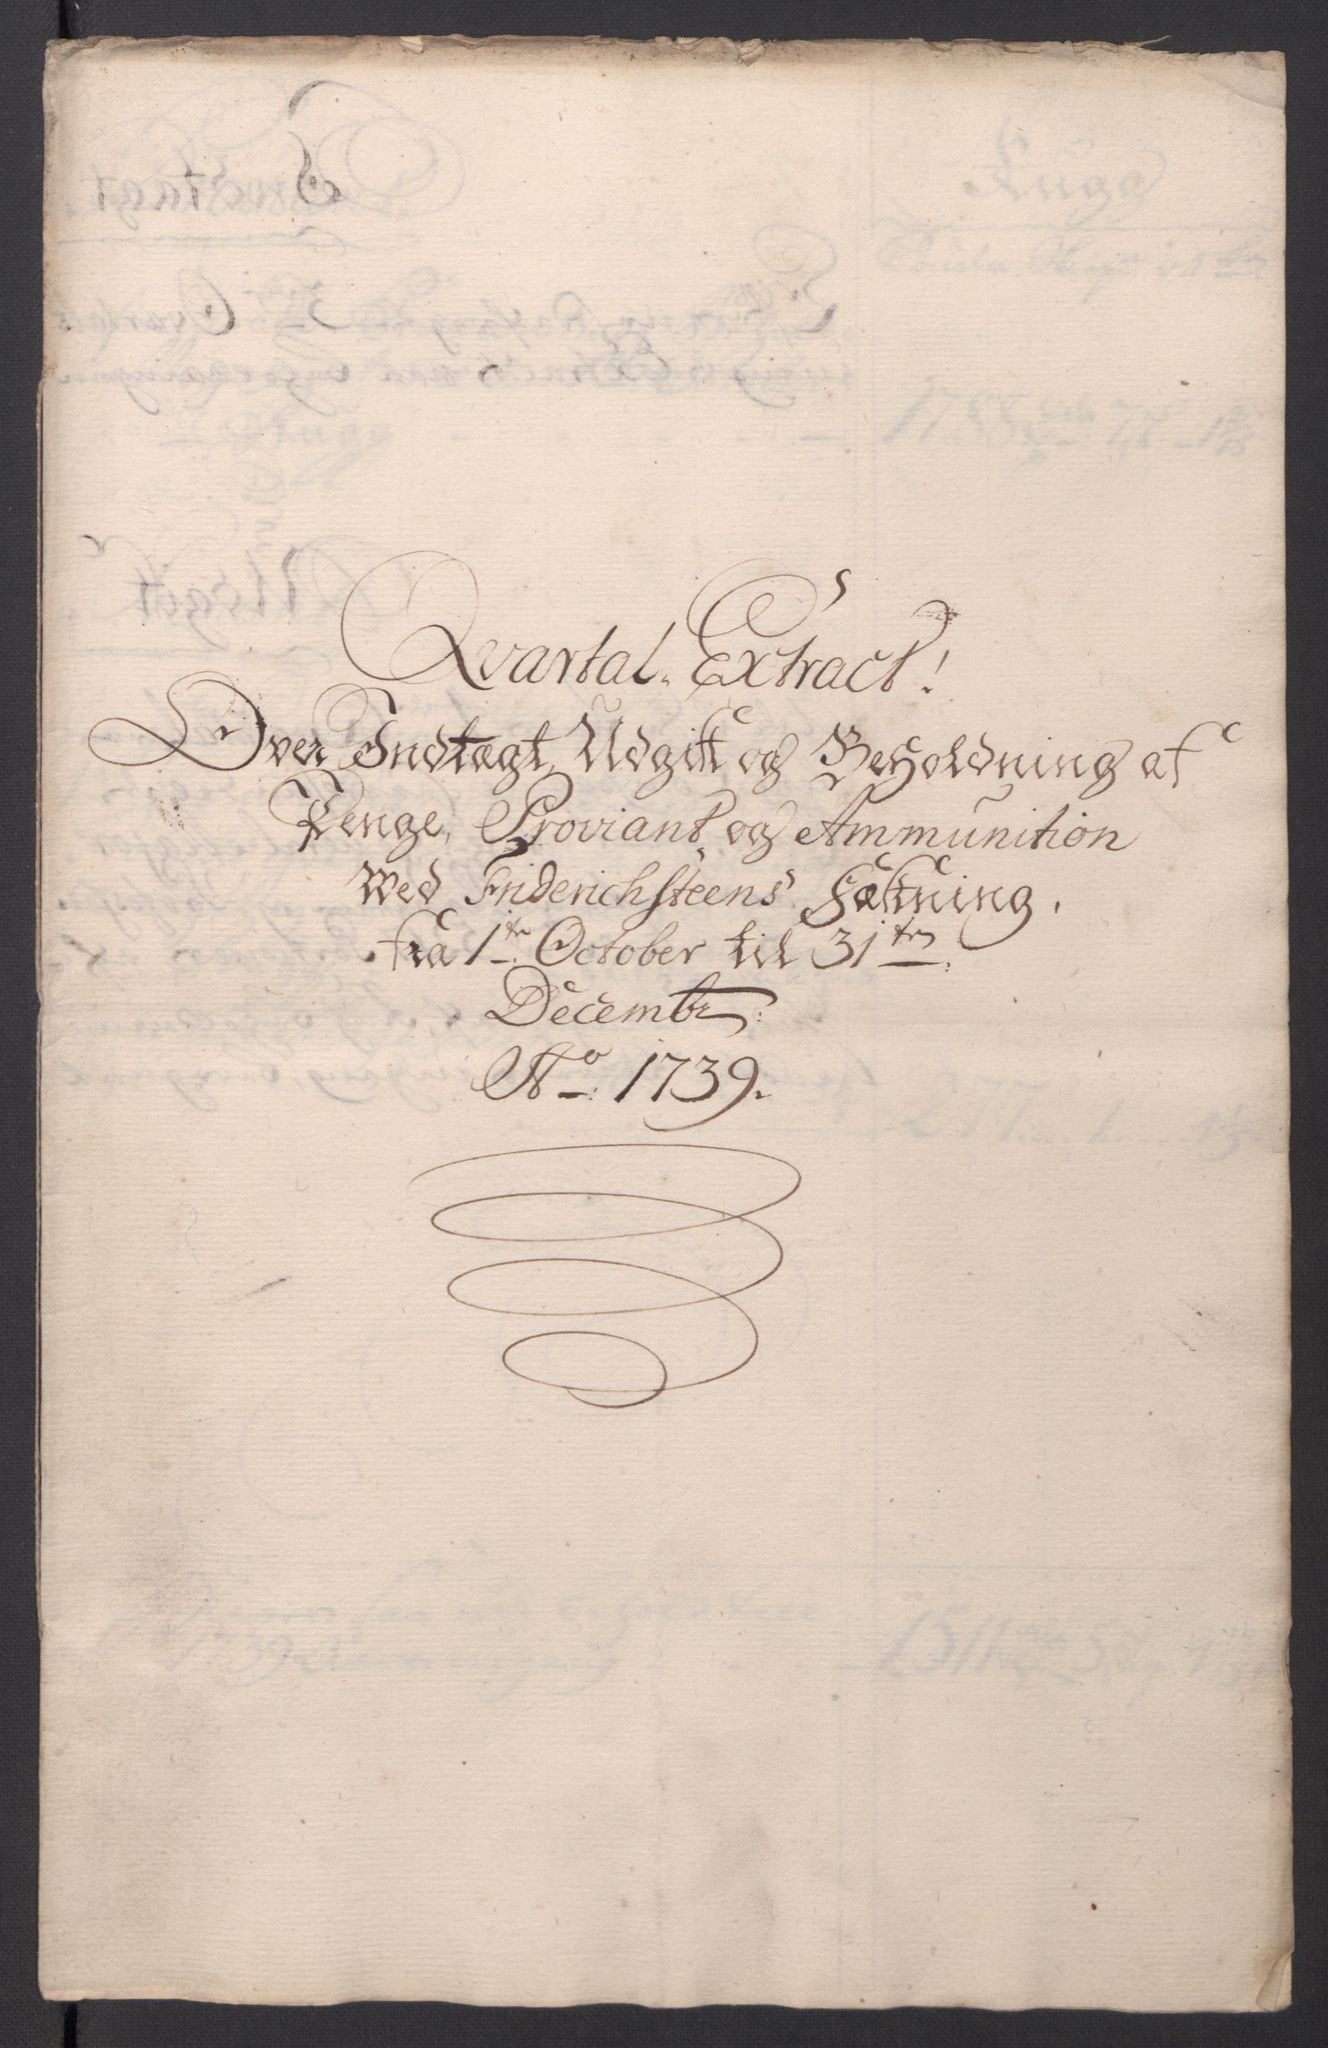 Qvartal. Extract!
Over Indtægt, Udgift og Beholdning af
Penge, Proviant, og Ammunition
Wed Friderichsteens Fæstning.
fra 1te October til 31ten
Decembr:
Ao: 1739.